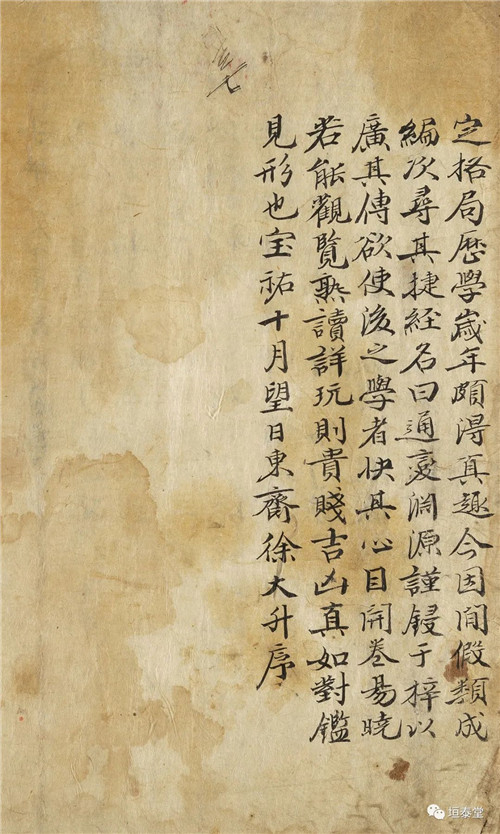 定格局歷學歲年頗得真趣今因閒假類成
編次尋其捷經名曰通變淵源謹鋟于梓以
廣其傳欲使後之學者快其心目開卷易曉
若能觀覽熟讀詳玩則貴賤吉凶真如對鑑
見形也宝祐十月望日東齋徐大升序
垣泰堂